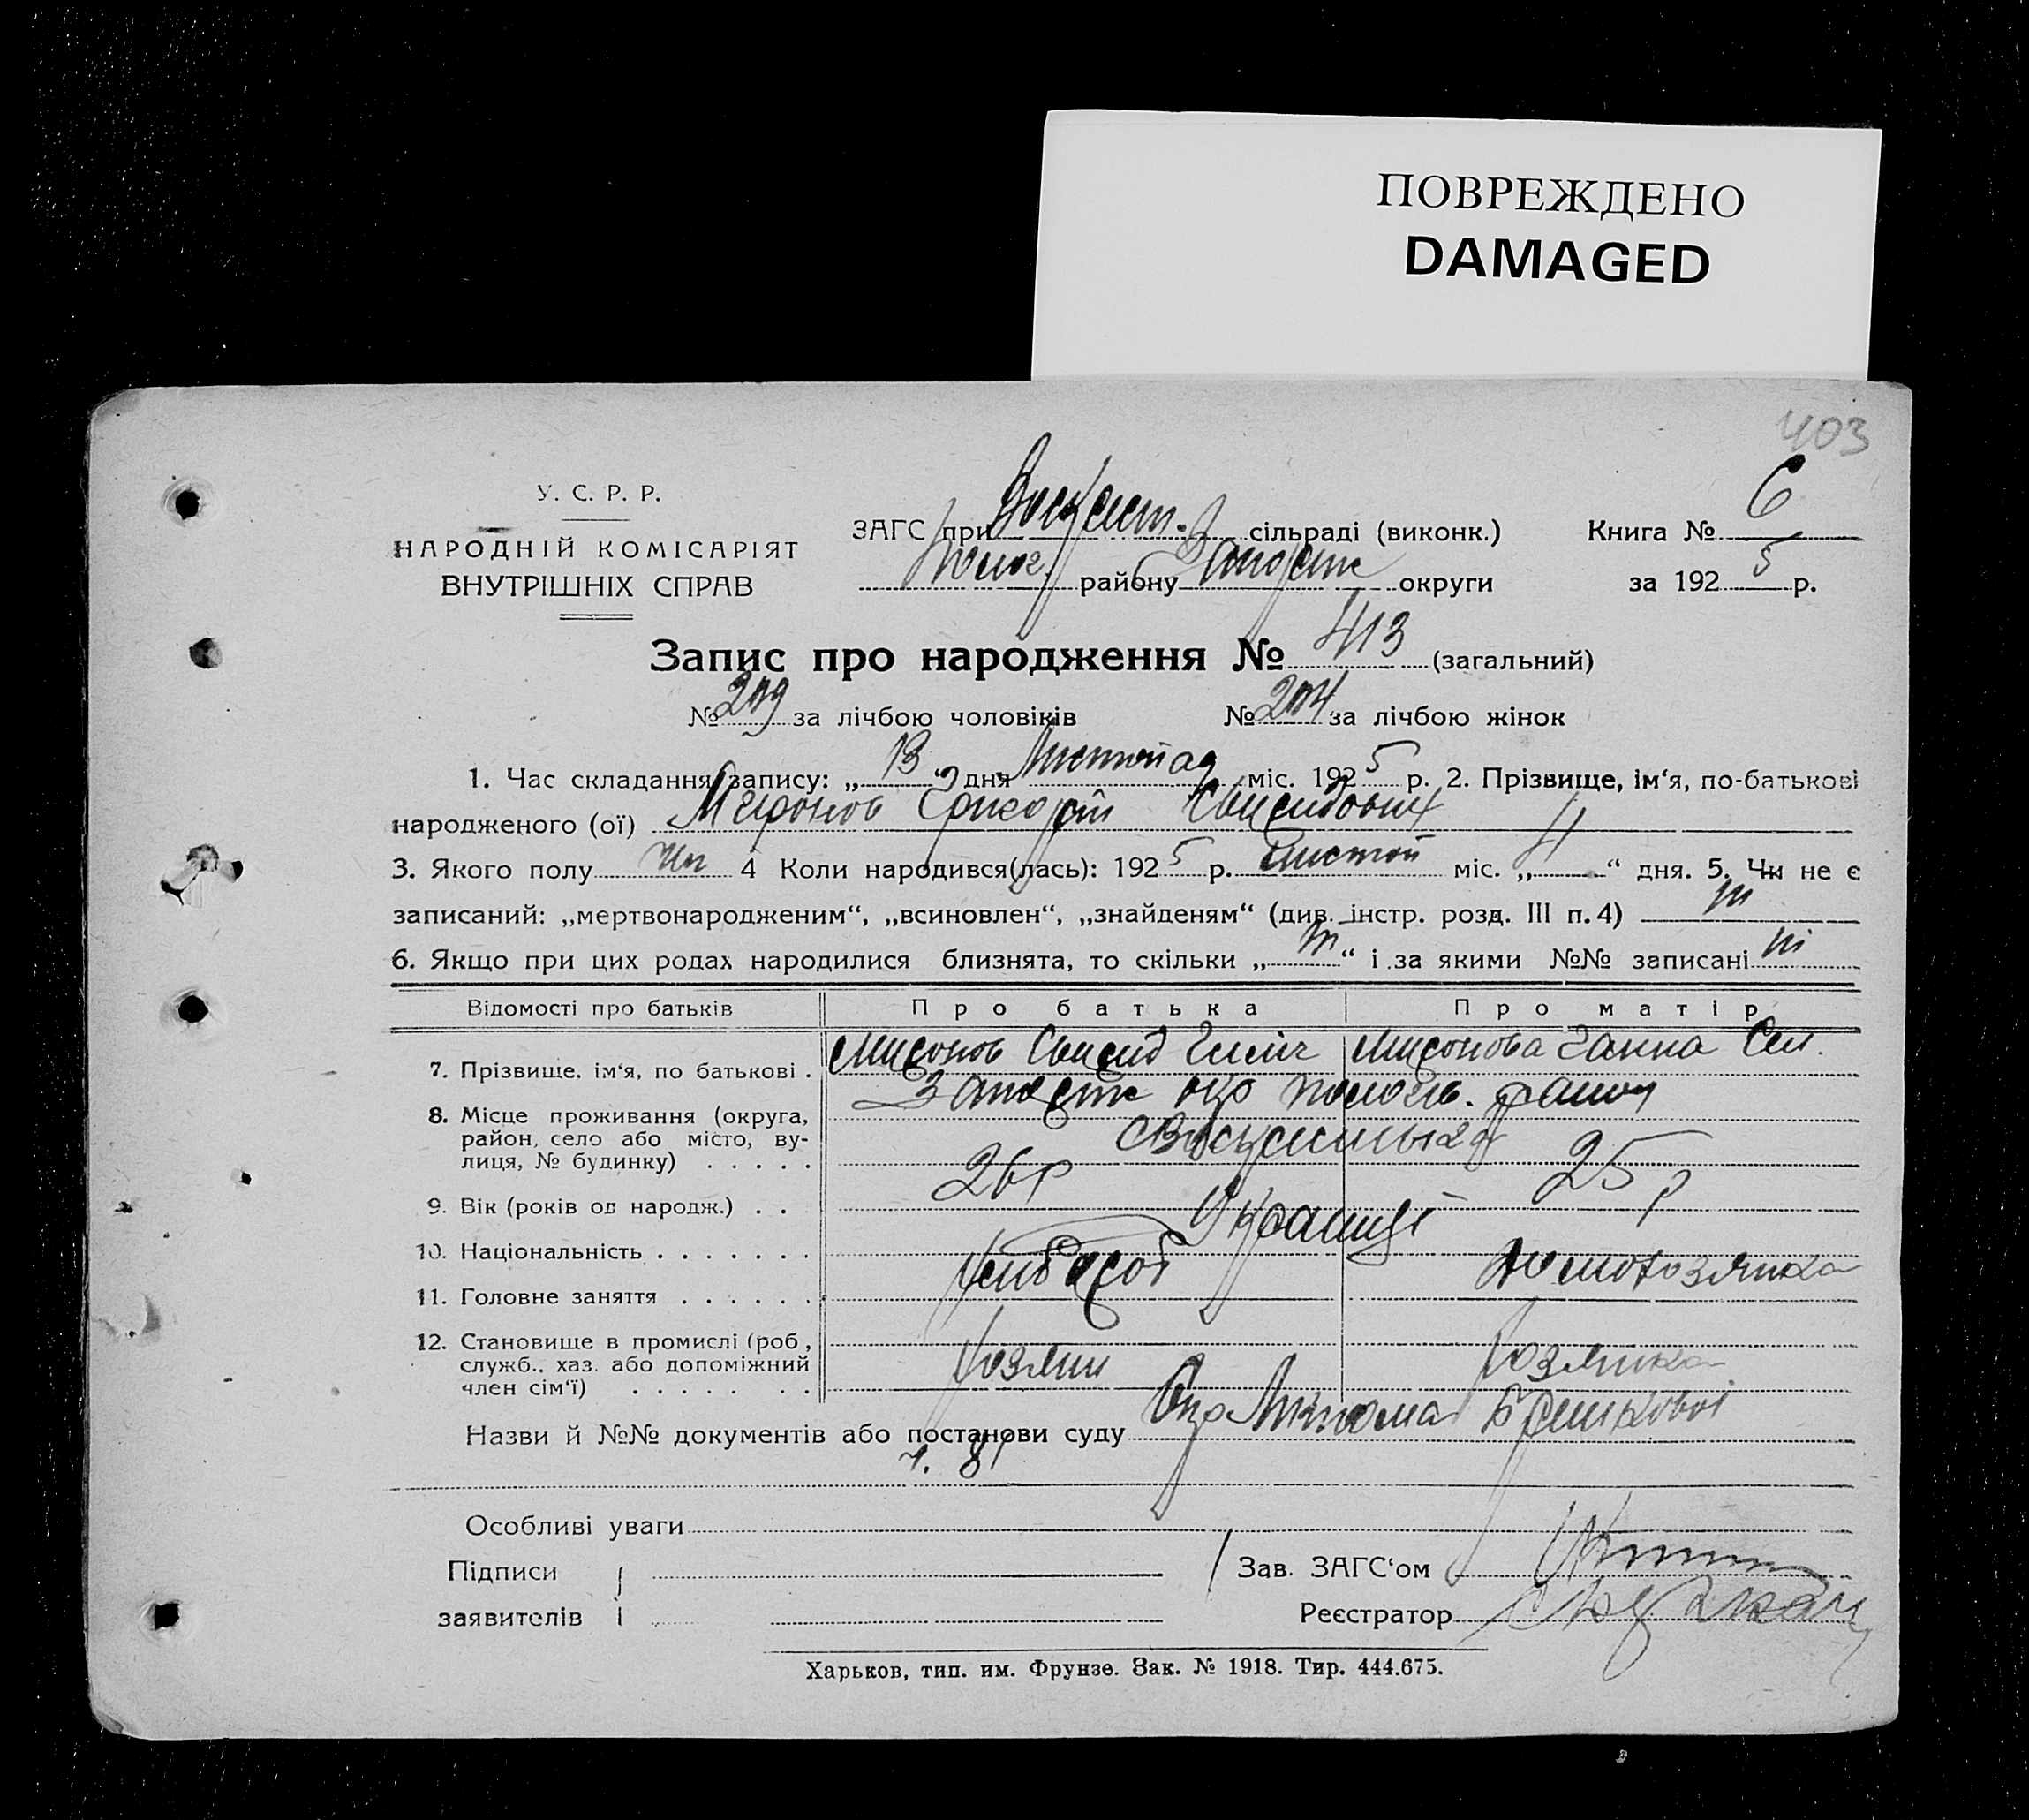 ПОВРЕЖДЕНО
DAMAGED
403
У. С. Р. Р.
НАРОДНІЙ КОМІСАРІЯТ
ВНУТРІШНІХ СПРАВ
ЗАГС при Воскресен. сільраді (виконк.)
Полог. району Запоріж округи
Книга № 6
за 1925 р.
Запис про народження № 413 (загальний)
№ 209 за лічбою чоловіків № 204 за лічбою жінок
1. Час складання запису: „13" дня Листопад міс. 1925 р. 2. Прізвище, ім‘я, по-батькові
народженого (ої) Миронов Григорій
3. Якого полу 4 Коли народився(лась): 1925 р. Листоп міс. „11“ дня. 5. Чи не є
записаний: „мертвонародженим“, „всиновлен“, „знайденям“ (див. інстр. розд. III п. 4) ні
6. Якщо при цих родах народилися близнята, то скільки „ні“ і за якими №№ записані ні
Відомості про батьків Про батька Про матір
7. Прізвище, ім‘я, по батькові . Миронов Миронова Ганна Сем.
8. Місце проживання (округа,
район, село або місто, ву-
лиця, № будинку) . . . . .
Запоріж окр Пологів. району
с Воскресенька
9. Вік (років од народж.) . . 26 р 25 р
10. Національність . . . . . . . Українці
11. Головне заняття . . . . . . Хлібороб Домохозяйка
12. Становище в промислі (роб,
служб., хаз. або допоміжний
член сім‘ї) . . . . . . .
Хозяин Хозяйка
Назви й №№ документів або постанови суду
ч. 81
Особливі уваги
Підписи
заявителів
Зав. ЗАГС‘ом
Реєстратор
Харьков, тип. им. Фрунзе. Зак. № 1918. Тир. 444.675.